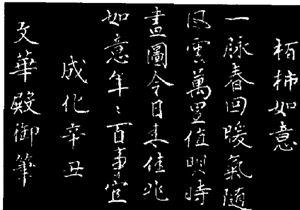 柏柿如意
一脉春回暖氣隨
風雲萬里值明時
畫圖今日来佳兆
如意年〻百事宜
成化辛丑
文華殿御筆